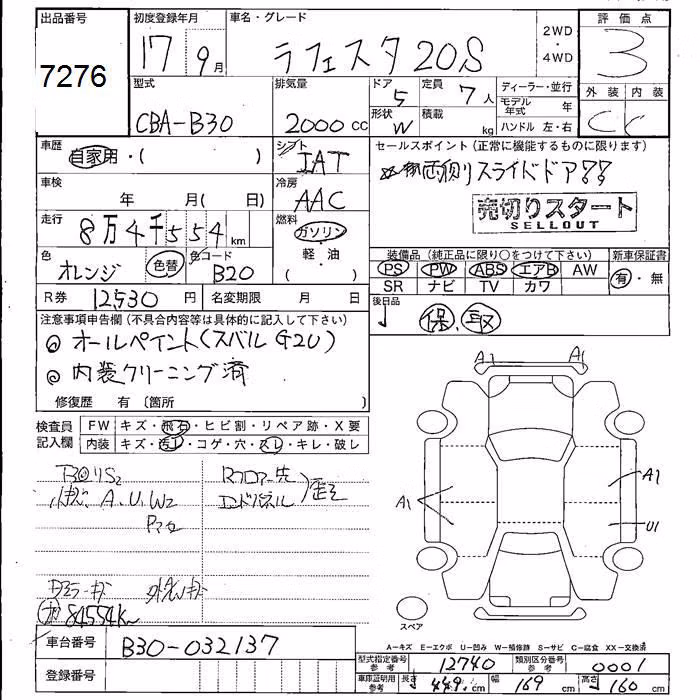 出品番号
7276
初度登録年月
17 9月
車名・グレード
ラフェスタ 20S
2WD
・
4WD
評価点
3
型式
CBA-B30
排気量
2000cc
ドア
5
形状
W
定員
7人
積載
kg
ディーラー・並行
モデル年式 年
ハンドル 左・右
外装 内装
C C
車歴
自家用・( )
シフト
IAT
セールスポイント(正常に機能するものに限ります)
両側スライドドア!!
売切りスタート
SELLOUT
車検
年 月( 日)
冷房
AAC
走行
8万4千554km
燃料
ガソリン
・
軽・油
( )
色
オレンジ
色替
色コード
B20
装備品(純正品に限り○をつけて下さい)
PS PW ABS エアB AW
SR ナビ TV カワ
新車保証書
有・無
R券 12530円
名変期限 月 日
後日品
保、取
注意事項申告欄(不具合内容等は具体的に記入して下さい)
◎ オールペイント(スバル G2U)
◎ 内装クリーニング済
修復歴 有〔箇所 〕
検査員記入欄
FW キズ・飛石・ヒビ割・リペア跡・X要
内装 キズ・汚レ・コゲ・穴・スレ・キレ・破レ
A、U、W2
Rフロアー先
エンドパネル
歪
84554Km
A1
A1
A1
A1
U1
スペア
車台番号
B30-032137
登録番号
A-キズ E-エクボ U-凹み W-補修跡 S-サビ C-腐食 XX-交換済
型式指定番号 参考
12740
類別区分番号 参考
0001
車庫証明用 参考
長さ 449cm 幅 169cm 高さ 160cm